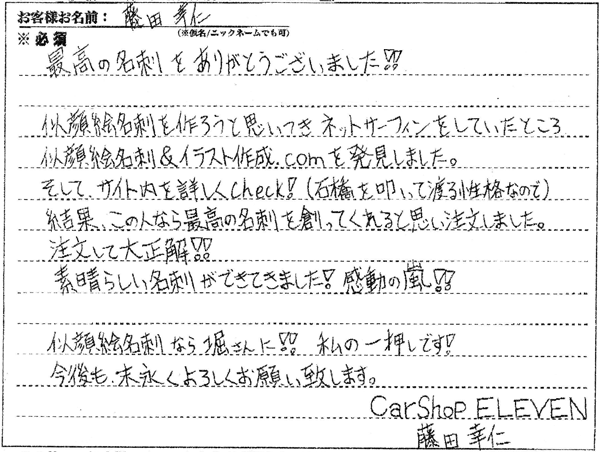 お客様お名前： 藤田 幸仁
※必須 (※仮名/ニックネームでも可)
最高の名刺をありがとうございました!!
似顔絵名刺を作ろうと思いつきネットサーフィンをしていたところ
似顔絵名刺&イラスト作成.comを発見しました。
そして、サイト内を詳しくcheck!(石橋を叩いて渡る性格なので)
結果、この人なら最高の名刺を創ってくれると思い注文しました。
注文して大正解!!
素晴らしい名刺ができてきました!感動の嵐!!
似顔絵名刺なら堀さんに!! 私の一押しです!
今後も、末永くよろしくお願い致します。
CarShop ELEVEN
藤田 幸仁